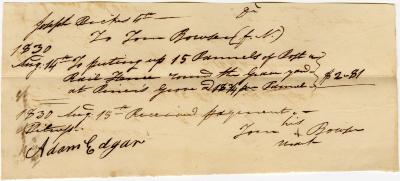 Joseph Ricks Dr
To Tom Bowser (f. N)
1830
Aug. 14th To putting up 15 Pannels of Post &
Rail Fence round the Grave yard
at Grove @ 18¾ pr Pannel $2-81
1830 Aug. 15th Received payment,
Witness
Tom his + mark Bowser
Adam Edgar